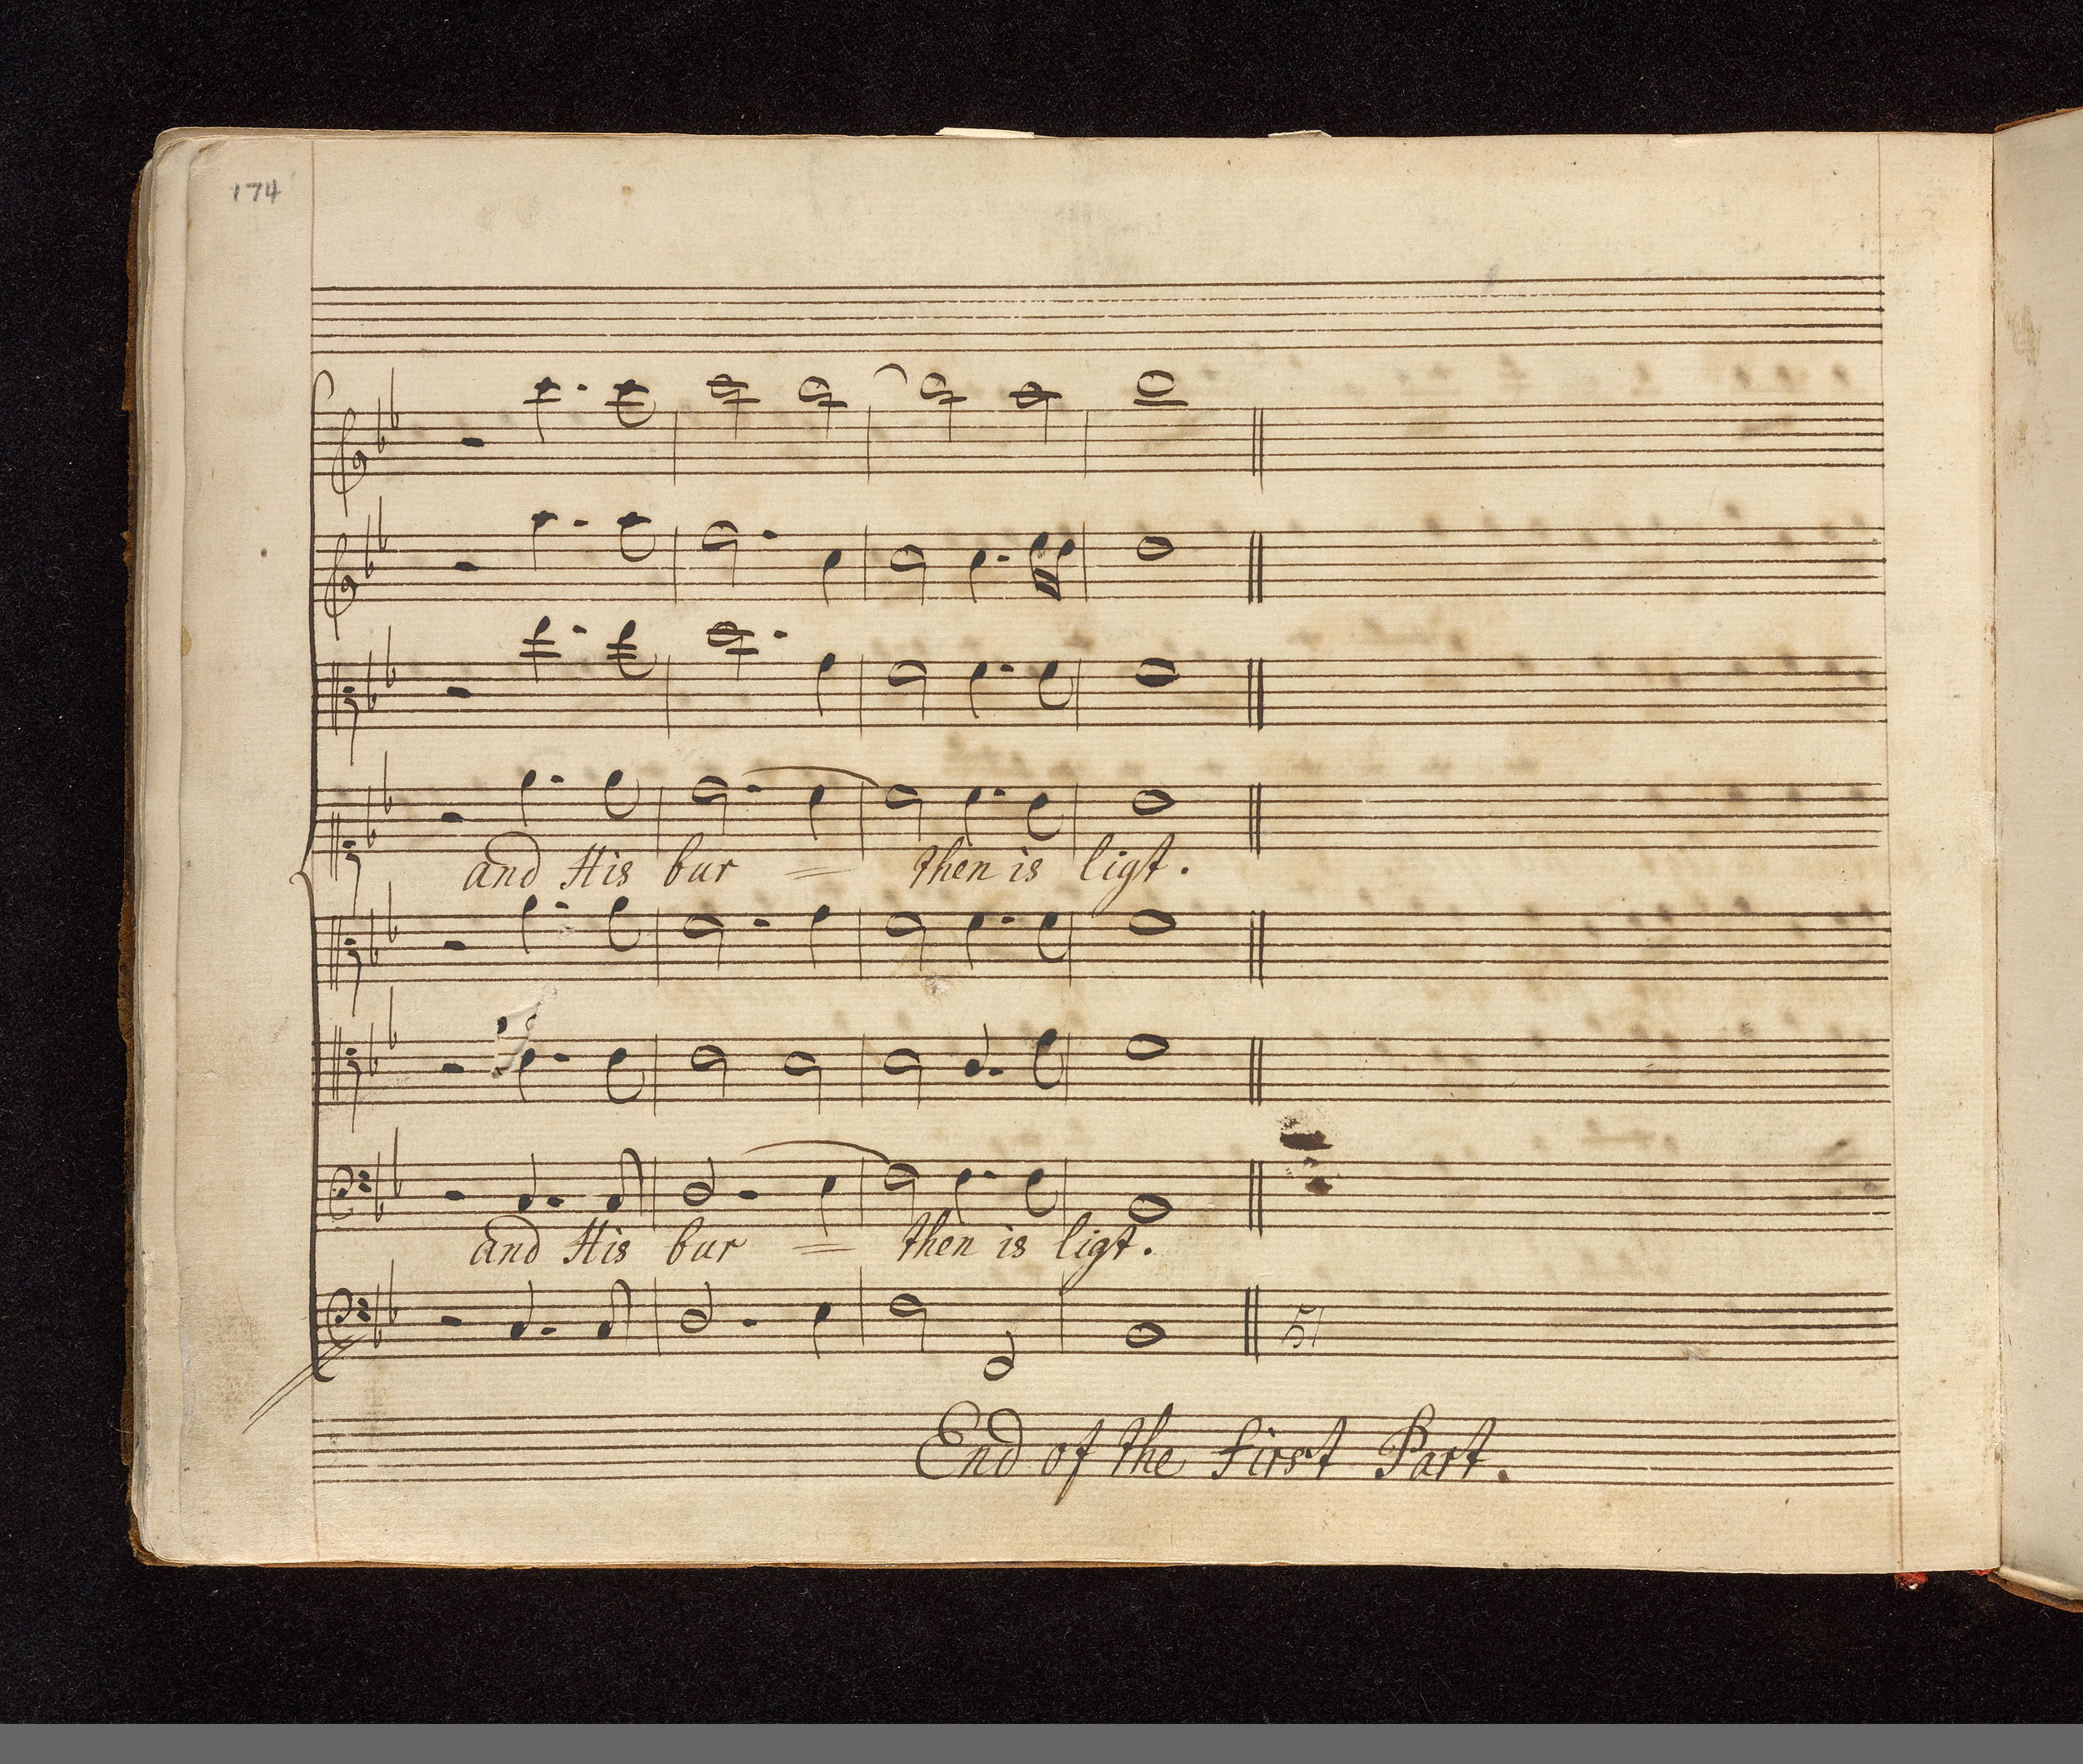 174
and His bur = then is ligt.
and His bur = then is ligt.
51
End of the first Part.